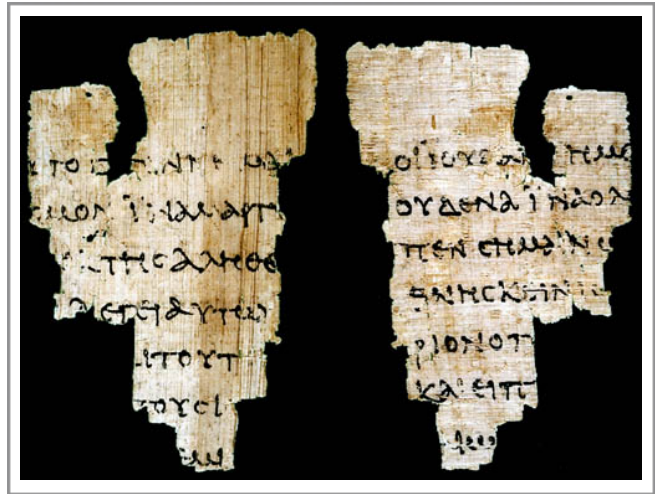 ΤΟ Γ
CΜΟΝ ΪΝΑ ΜΑΡΤΥ
ΤΗC ΑΛΗΘΕ
ΛΕΓΕΙ ΑΥΤΩ
ΙΤΟΥΤ
ΤΟΥC Ι
ΟΙ ΪΟΥΔΑ ΗΜΕ
ΟΥΔΕΝΑ ΪΝΑ Ο Λ
ΠΕΝ CΗΜΑΙΝΩ
ΘΝΗCΚΕΙΝ Ι
ΡΙΟΝ Ο Π
ΚΑΙ ΕΙΠ